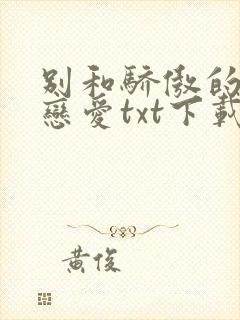 别和驕傲的
戀愛txt下載
黃俊